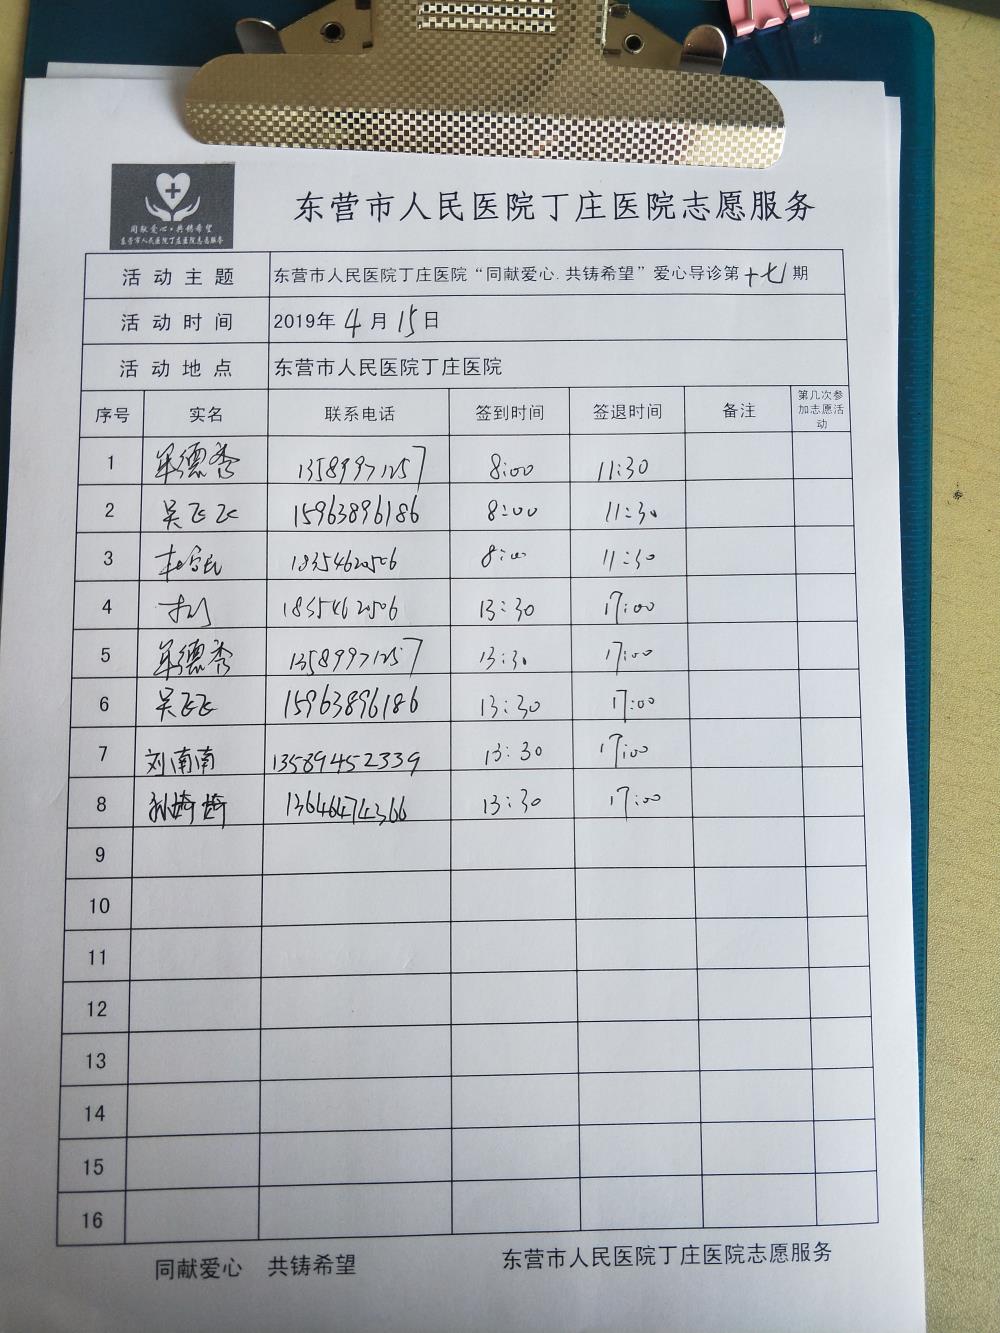 同献爱心·共铸希望
东营市人民医院丁庄医院志愿服务
东营市人民医院丁庄医院志愿服务
活动主题 东营市人民医院丁庄医院“同献爱心.共铸希望”爱心导诊第十七期
活动时间 2019年4月15日
活动地点 东营市人民医院丁庄医院
序号 实名 联系电话 签到时间 签退时间 备注 第几次参加志愿活动
1 单德秀 13589971257 8:00 11:30
2 吴飞飞 15963896186 8:00 11:30
3 18354620506 8:00 11:30
4 18354620506 13:30 17:00
5 单德秀 13589971257 13:30 17:00
6 吴飞飞 15963896186 13:30 17:00
7 刘南南 13589452339 13:30 17:00
8 孙婷婷 13646474366 13:30 17:00
9
10
11
12
13
14
15
16
同献爱心 共铸希望 东营市人民医院丁庄医院志愿服务